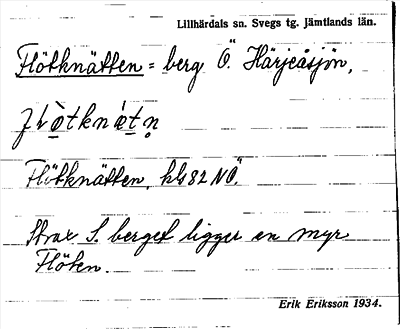 Lillhärdals sn. Svegs tg. Jämtlands län.
Flötknätten = berg Ö. Härjeåsjön,
Flötknätten, NÖ.
Strax S. berget ligger en myr
Flöten.
Erik Eriksson 1934.